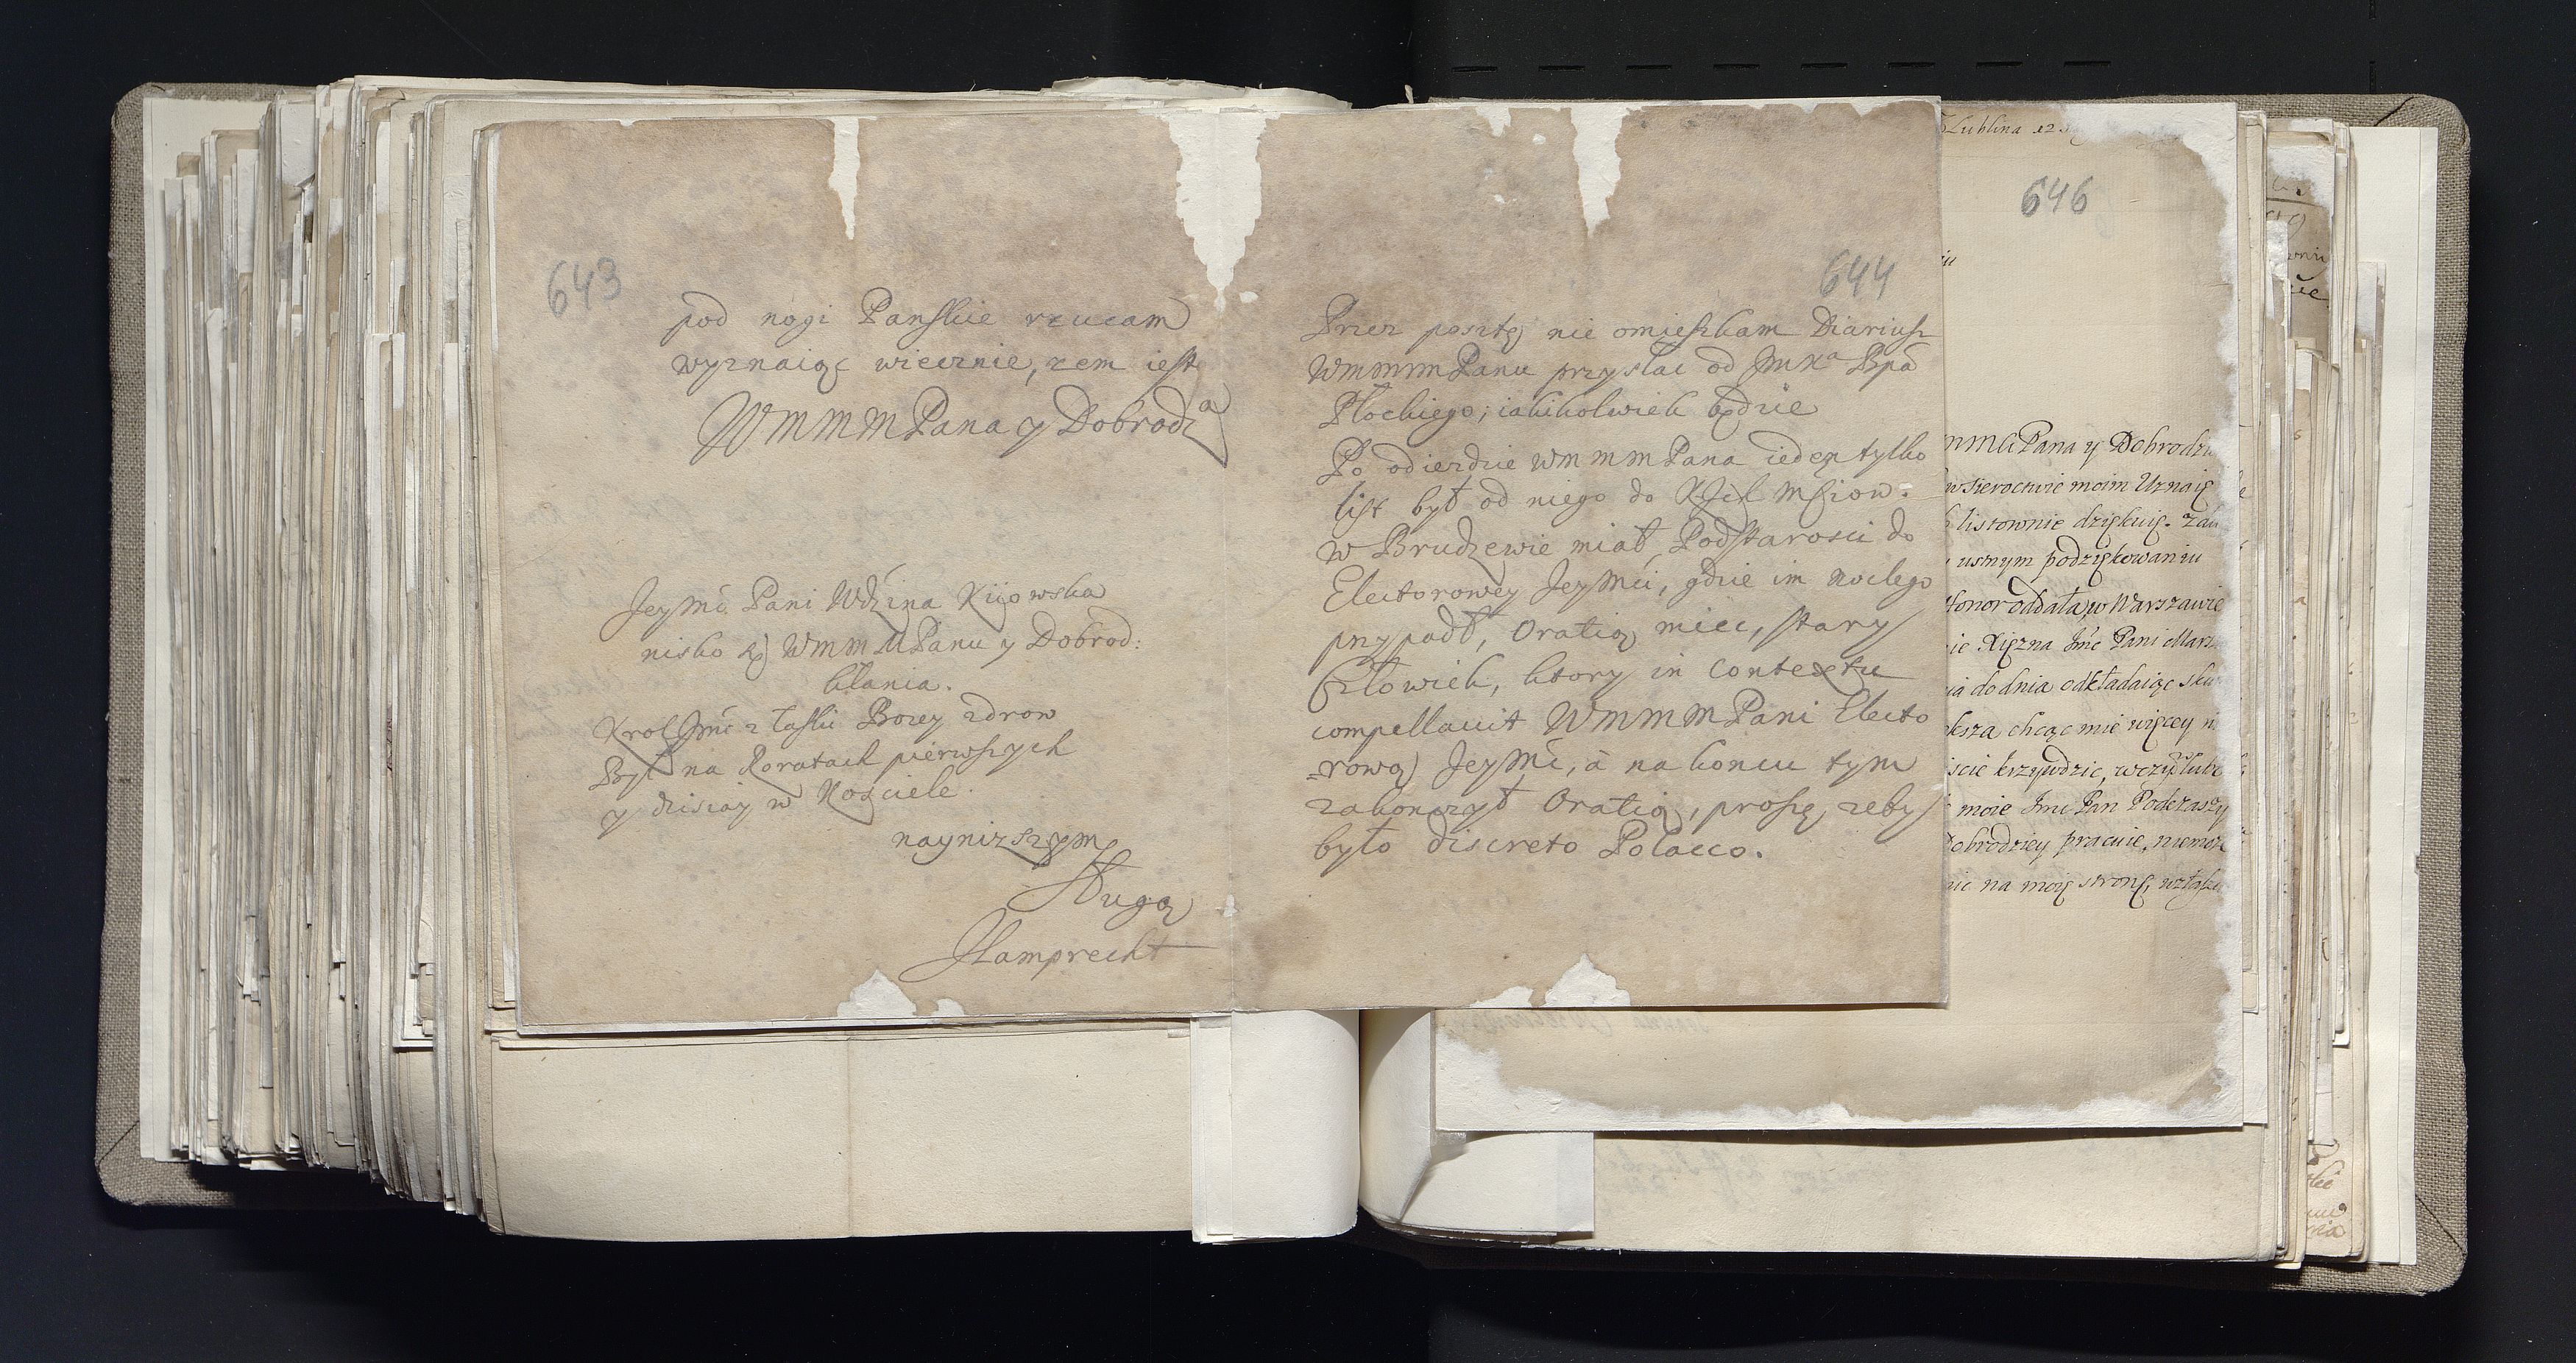 643
pod nogi Panskie rzucam
wyznaiąc wiecznie, zem iest
WMMMPana y Dobrodza
Jeymć Pani Wdzina Kijowska
nisko się WMMMPanu y Dobrod:
kłania.
Krol Jmć z łaski Bozey zdrow
Był na Roratach pierwszych
y dzisiay w Kosciele.
nayniższym
Sługą
JLamprecht
644
Przez posztę nie omieszkam Diariusz
WmmmmPanu przysłac od JmXa Bpa
Płockiego; iakikolwiek będzie
Po odiezdzie WmmmPana ieden tylko
list był od niego do
w Brudzewie miał Podstarosci do
Electorowey Jeymći, gdzie im noclego
przypadł, Oratią miec, stary
Człowiek, ktory in contextu
compellavit WmmmPani Electo
=rową Jeymć, à na koncu tym
zakonczył Oratią, proszę, zeby
było discreto Polacco.
Lublina 12
646
Pana y Dobrodzi
w sieroctwie moim Uznaię
listownie dziękuię. Zań
usnym podziękowaniu
Honor oddała, w Warszawie
ie Xięzna Jmć Pani Marsz
ia do dnia odkładaiąc sku
ksza chcąc mie więcey n
iscie krzywdzic, wczym lubo
moie Jmć Pan Podczaszy
Dobrodziey pracuie, niemoz
nic na moię stronę, wzłąsz